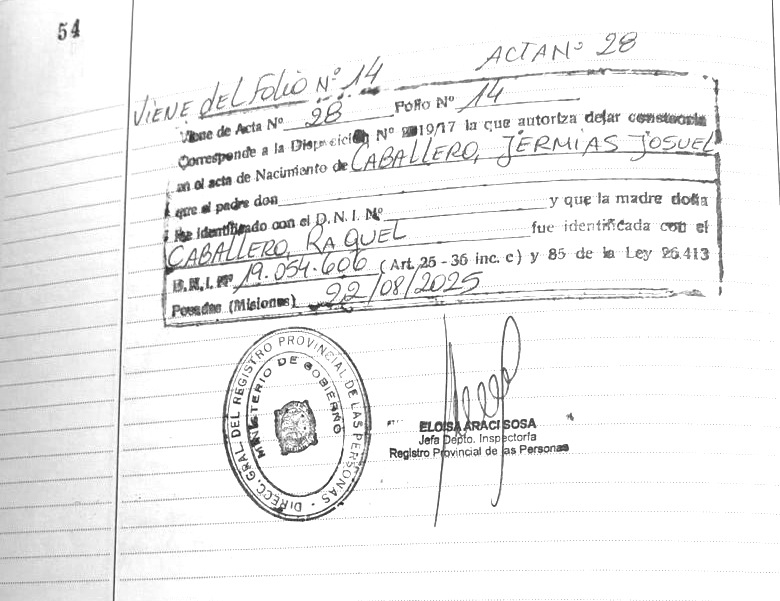 54
ACTA Nº 28
VIENE DEL FOLIO Nº 14
Viene de Acta Nº 28 Folio Nº 14
Corresponde a la Disposición Nº 2019/17 la que autoriza dejar constancia
en el acta de Nacimiento de CABALLERO, JERMIAS JOSUEL
que el padre don
y que la madre doña
fue identificado con el D.N.I. Nº
CABALLERO, RAQUEL fue identificada con el
D.N.I. Nº 19.054.606 (Art. 25 - 36 inc. c) y 85 de la Ley 26.413
Posadas (Misiones) 22/08/2025
DIRECC. GRAL. DEL REGISTRO PROVINCIAL DE LAS PERSONAS
MINISTERIO DE GOBIERNO
ELOISA ARACI SOSA
Jefa Depto. Inspectoría
Registro Provincial de las Personas